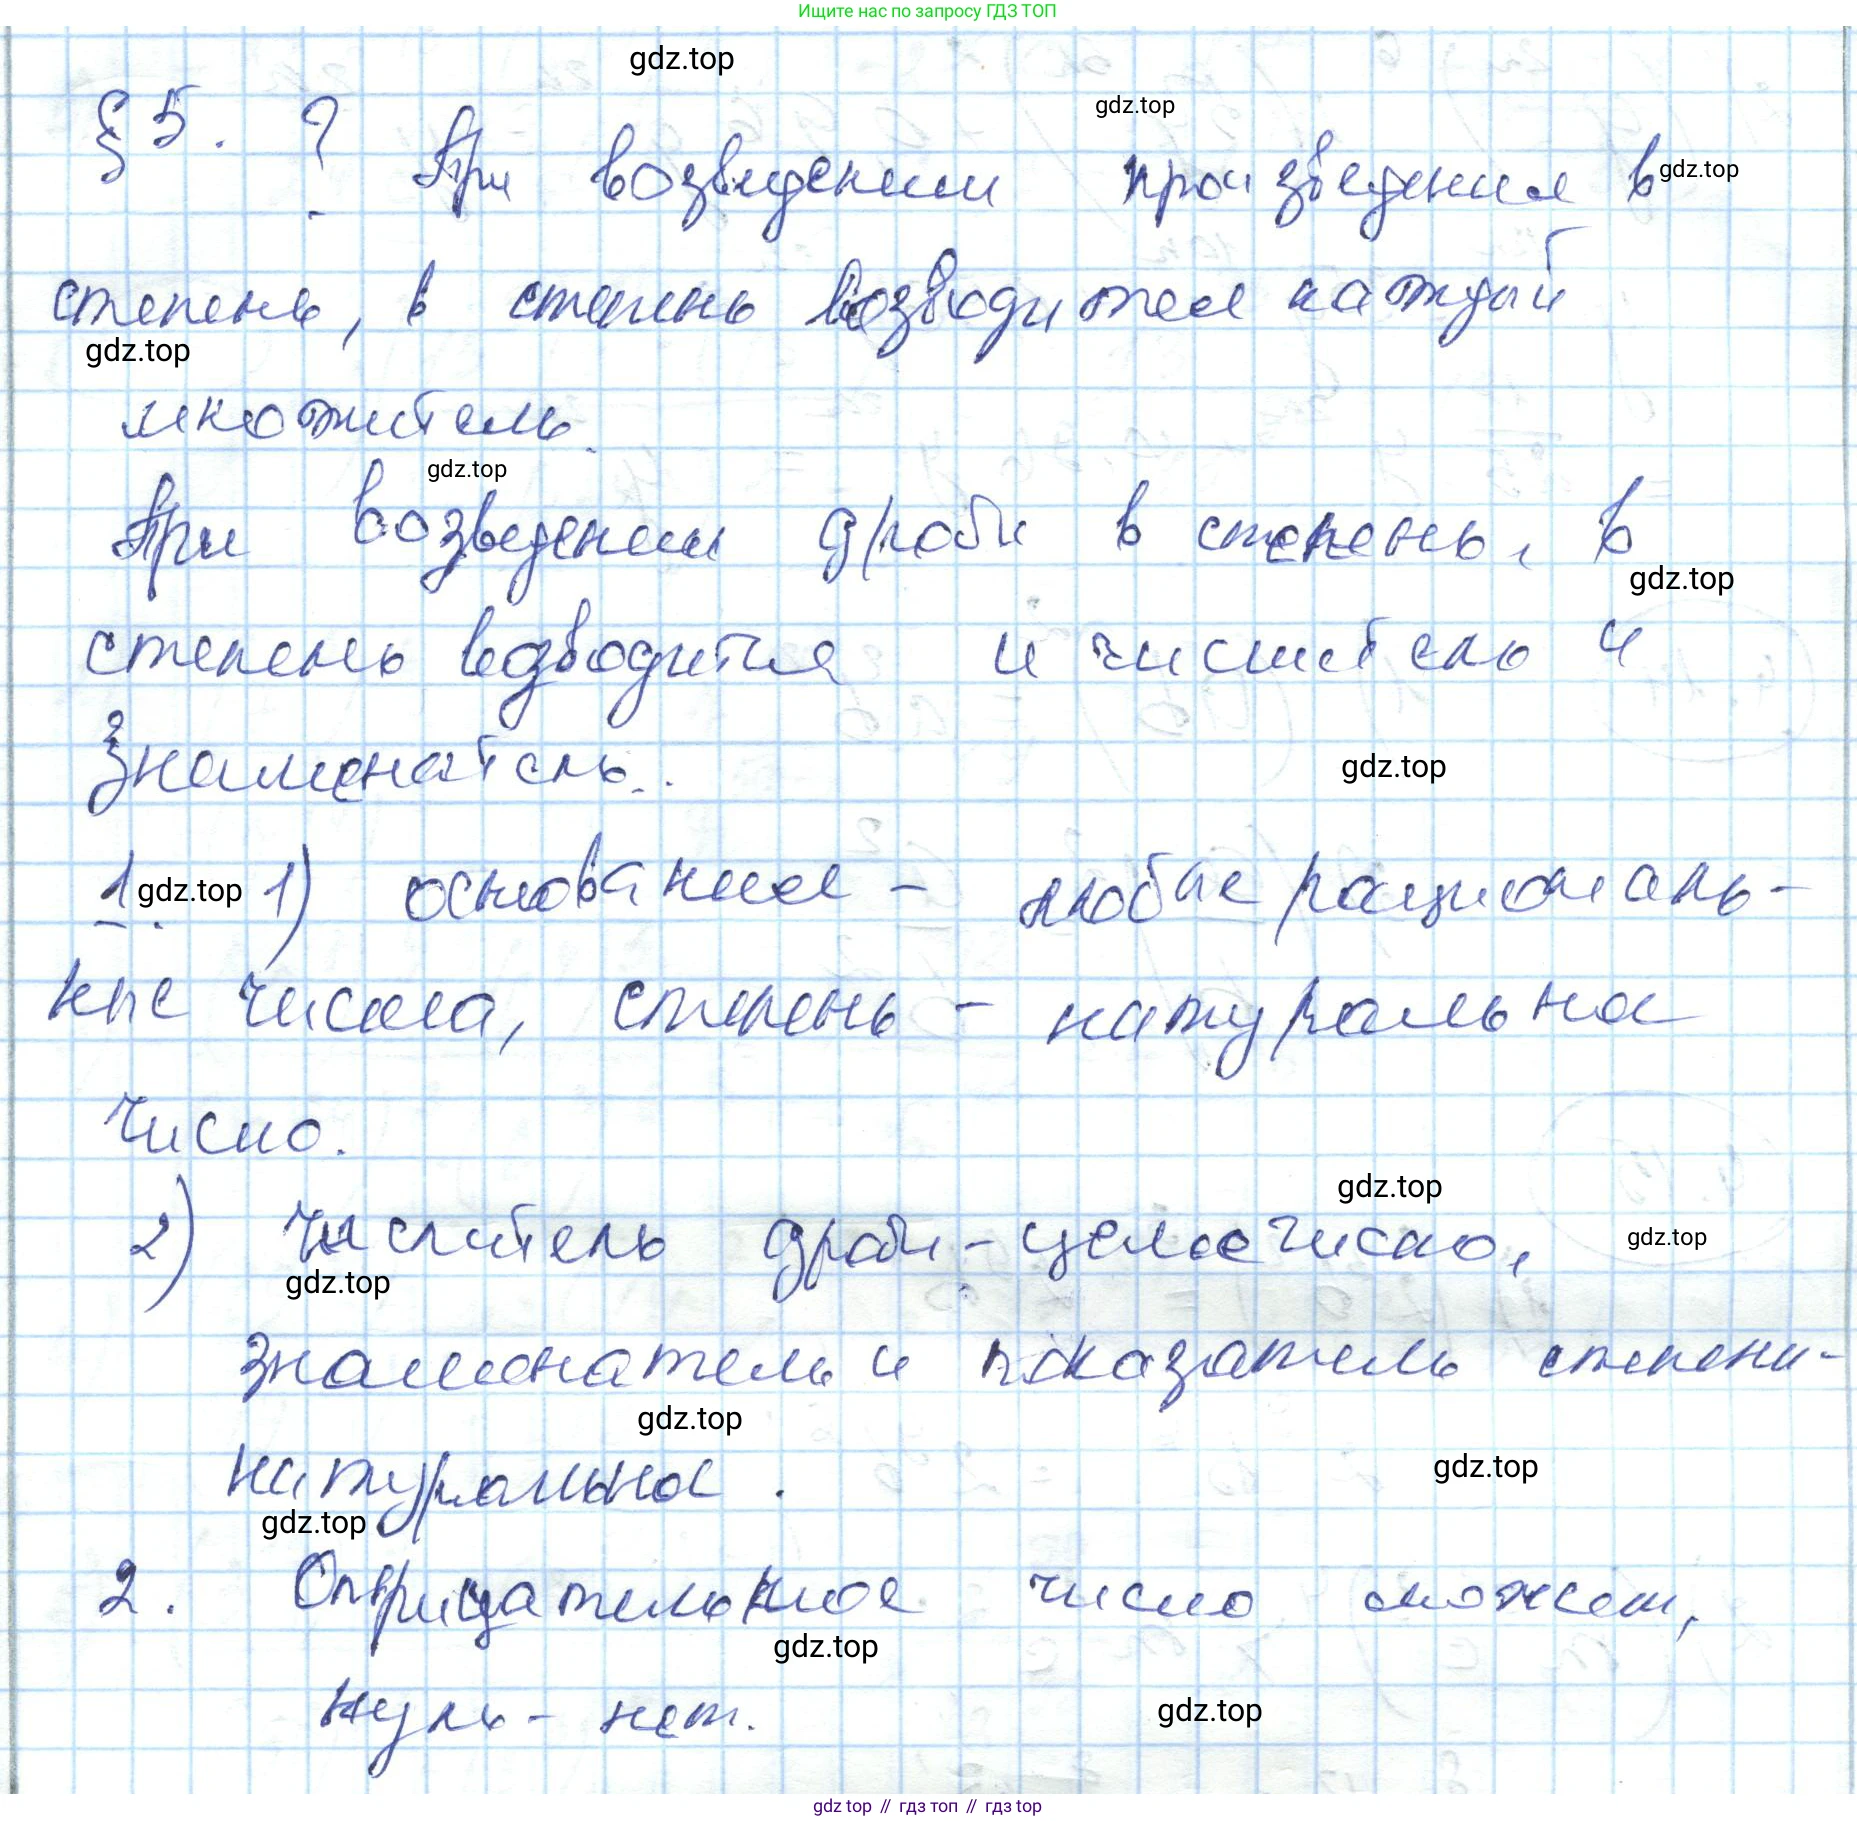 Ищите нас по запросу ГДЗ ТОП
gdz.top
gdz.top
§ 5. ? При возведении произведения в gdz.top
степень, в степень возводится каждый
gdz.top
множитель.
gdz.top
При возведении дроби в степень, в
gdz.top
степень возводится и числитель и
знаменатель.
gdz.top
1. gdz.top 1) основание - любые рациональ-
ные числа, степень - натуральное
число.
gdz.top
2) числитель дроби - целое число, gdz.top
gdz.top
знаменатель и показатель степени -
gdz.top
натуральное.
gdz.top
gdz.top
2. Отрицательное число может,
gdz.top
нуль - нет.
gdz.top
gdz top // гдз топ // гдз top